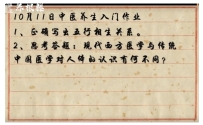 10月11日中医养生入门作业
1、正确写出五行相生关系。
2、思考答题：现代西方医学与传统
中国医学对人体的认识有何不同？